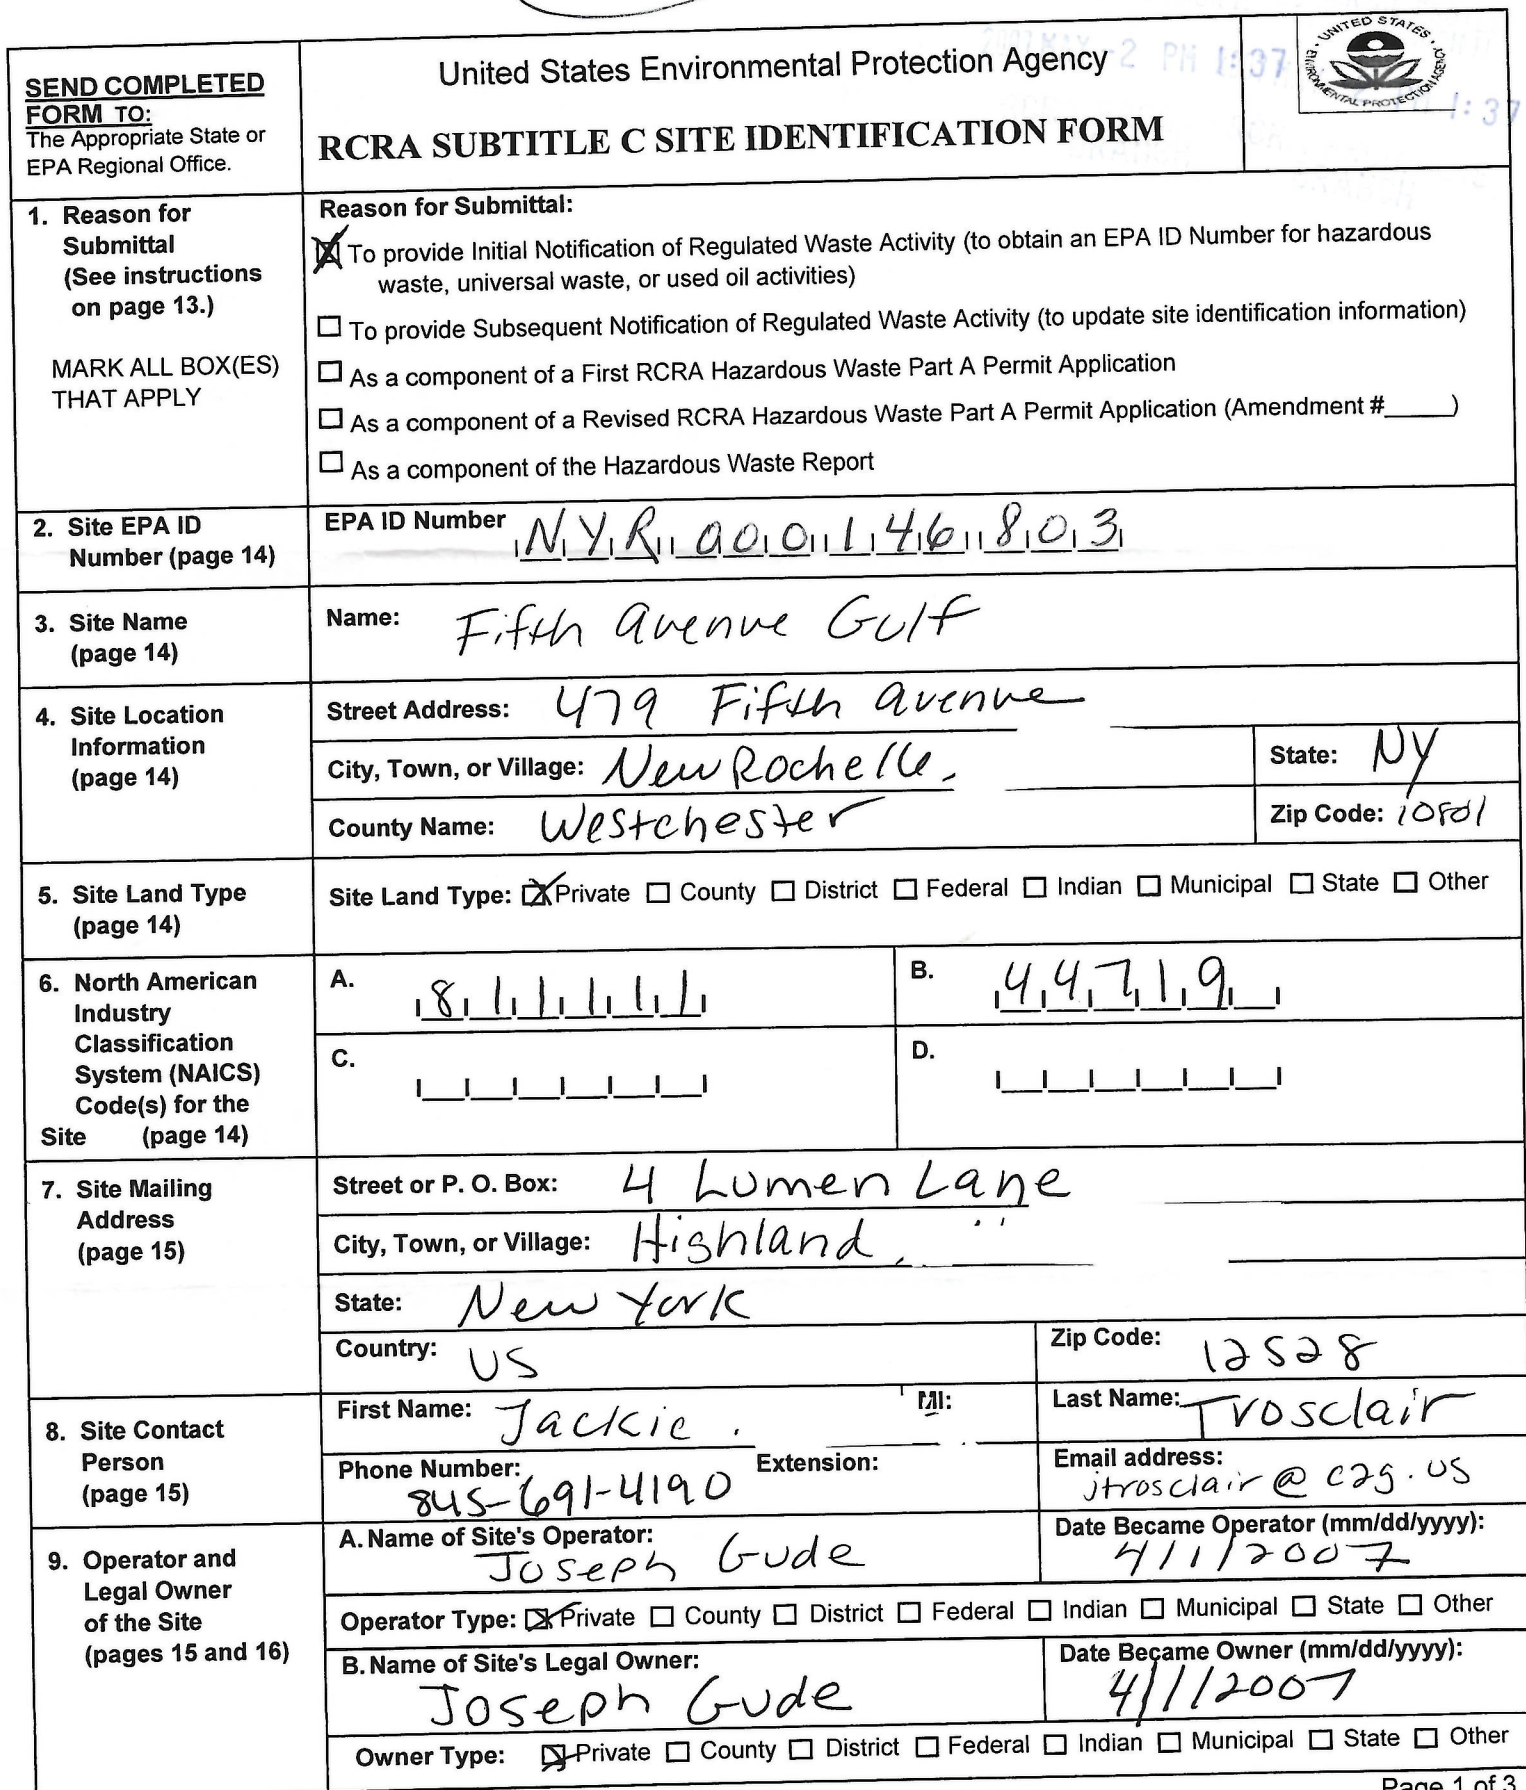 2 PM 1:37
1:37
SEND COMPLETED
FORM TO:
The Appropriate State or
EPA Regional Office.
United States Environmental Protection Agency
RCRA SUBTITLE C SITE IDENTIFICATION FORM
UNITED STATES
ENVIRONMENTAL PROTECTION AGENCY
1. Reason for
Submittal
(See instructions
on page 13.)
MARK ALL BOX(ES)
THAT APPLY
Reason for Submittal:
To provide Initial Notification of Regulated Waste Activity (to obtain an EPA ID Number for hazardous
waste, universal waste, or used oil activities)
To provide Subsequent Notification of Regulated Waste Activity (to update site identification information)
As a component of a First RCRA Hazardous Waste Part A Permit Application
As a component of a Revised RCRA Hazardous Waste Part A Permit Application (Amendment #_____)
As a component of the Hazardous Waste Report
2. Site EPA ID
Number (page 14)
EPA ID Number NYR 000 146 803
3. Site Name
(page 14)
Name: Fifth avenue Gulf
4. Site Location
Information
(page 14)
Street Address: 479 Fifth avenue
City, Town, or Village: New Rochelle.
State: NY
County Name: Westchester
Zip Code: 10801
5. Site Land Type
(page 14)
Site Land Type: Private County District Federal Indian Municipal State Other
6. North American
Industry
Classification
System (NAICS)
Code(s) for the
Site (page 14)
A. 811111
B. 44719
C.
D.
7. Site Mailing
Address
(page 15)
Street or P. O. Box: 4 Lumen Lane
City, Town, or Village: Highland
State: New York
Country: US
Zip Code: 12528
8. Site Contact
Person
(page 15)
First Name: Jackie
MI:
Last Name: Trosclair
Phone Number: 845-691-4190
Extension:
Email address: jtrosclair@c2g.us
9. Operator and
Legal Owner
of the Site
(pages 15 and 16)
A. Name of Site's Operator:
Joseph Gude
Date Became Operator (mm/dd/yyyy):
4/1/2007
Operator Type: Private County District Federal Indian Municipal State Other
B. Name of Site's Legal Owner:
Joseph Gude
Date Became Owner (mm/dd/yyyy):
4/1/2007
Owner Type: Private County District Federal Indian Municipal State Other
Page 1 of 3